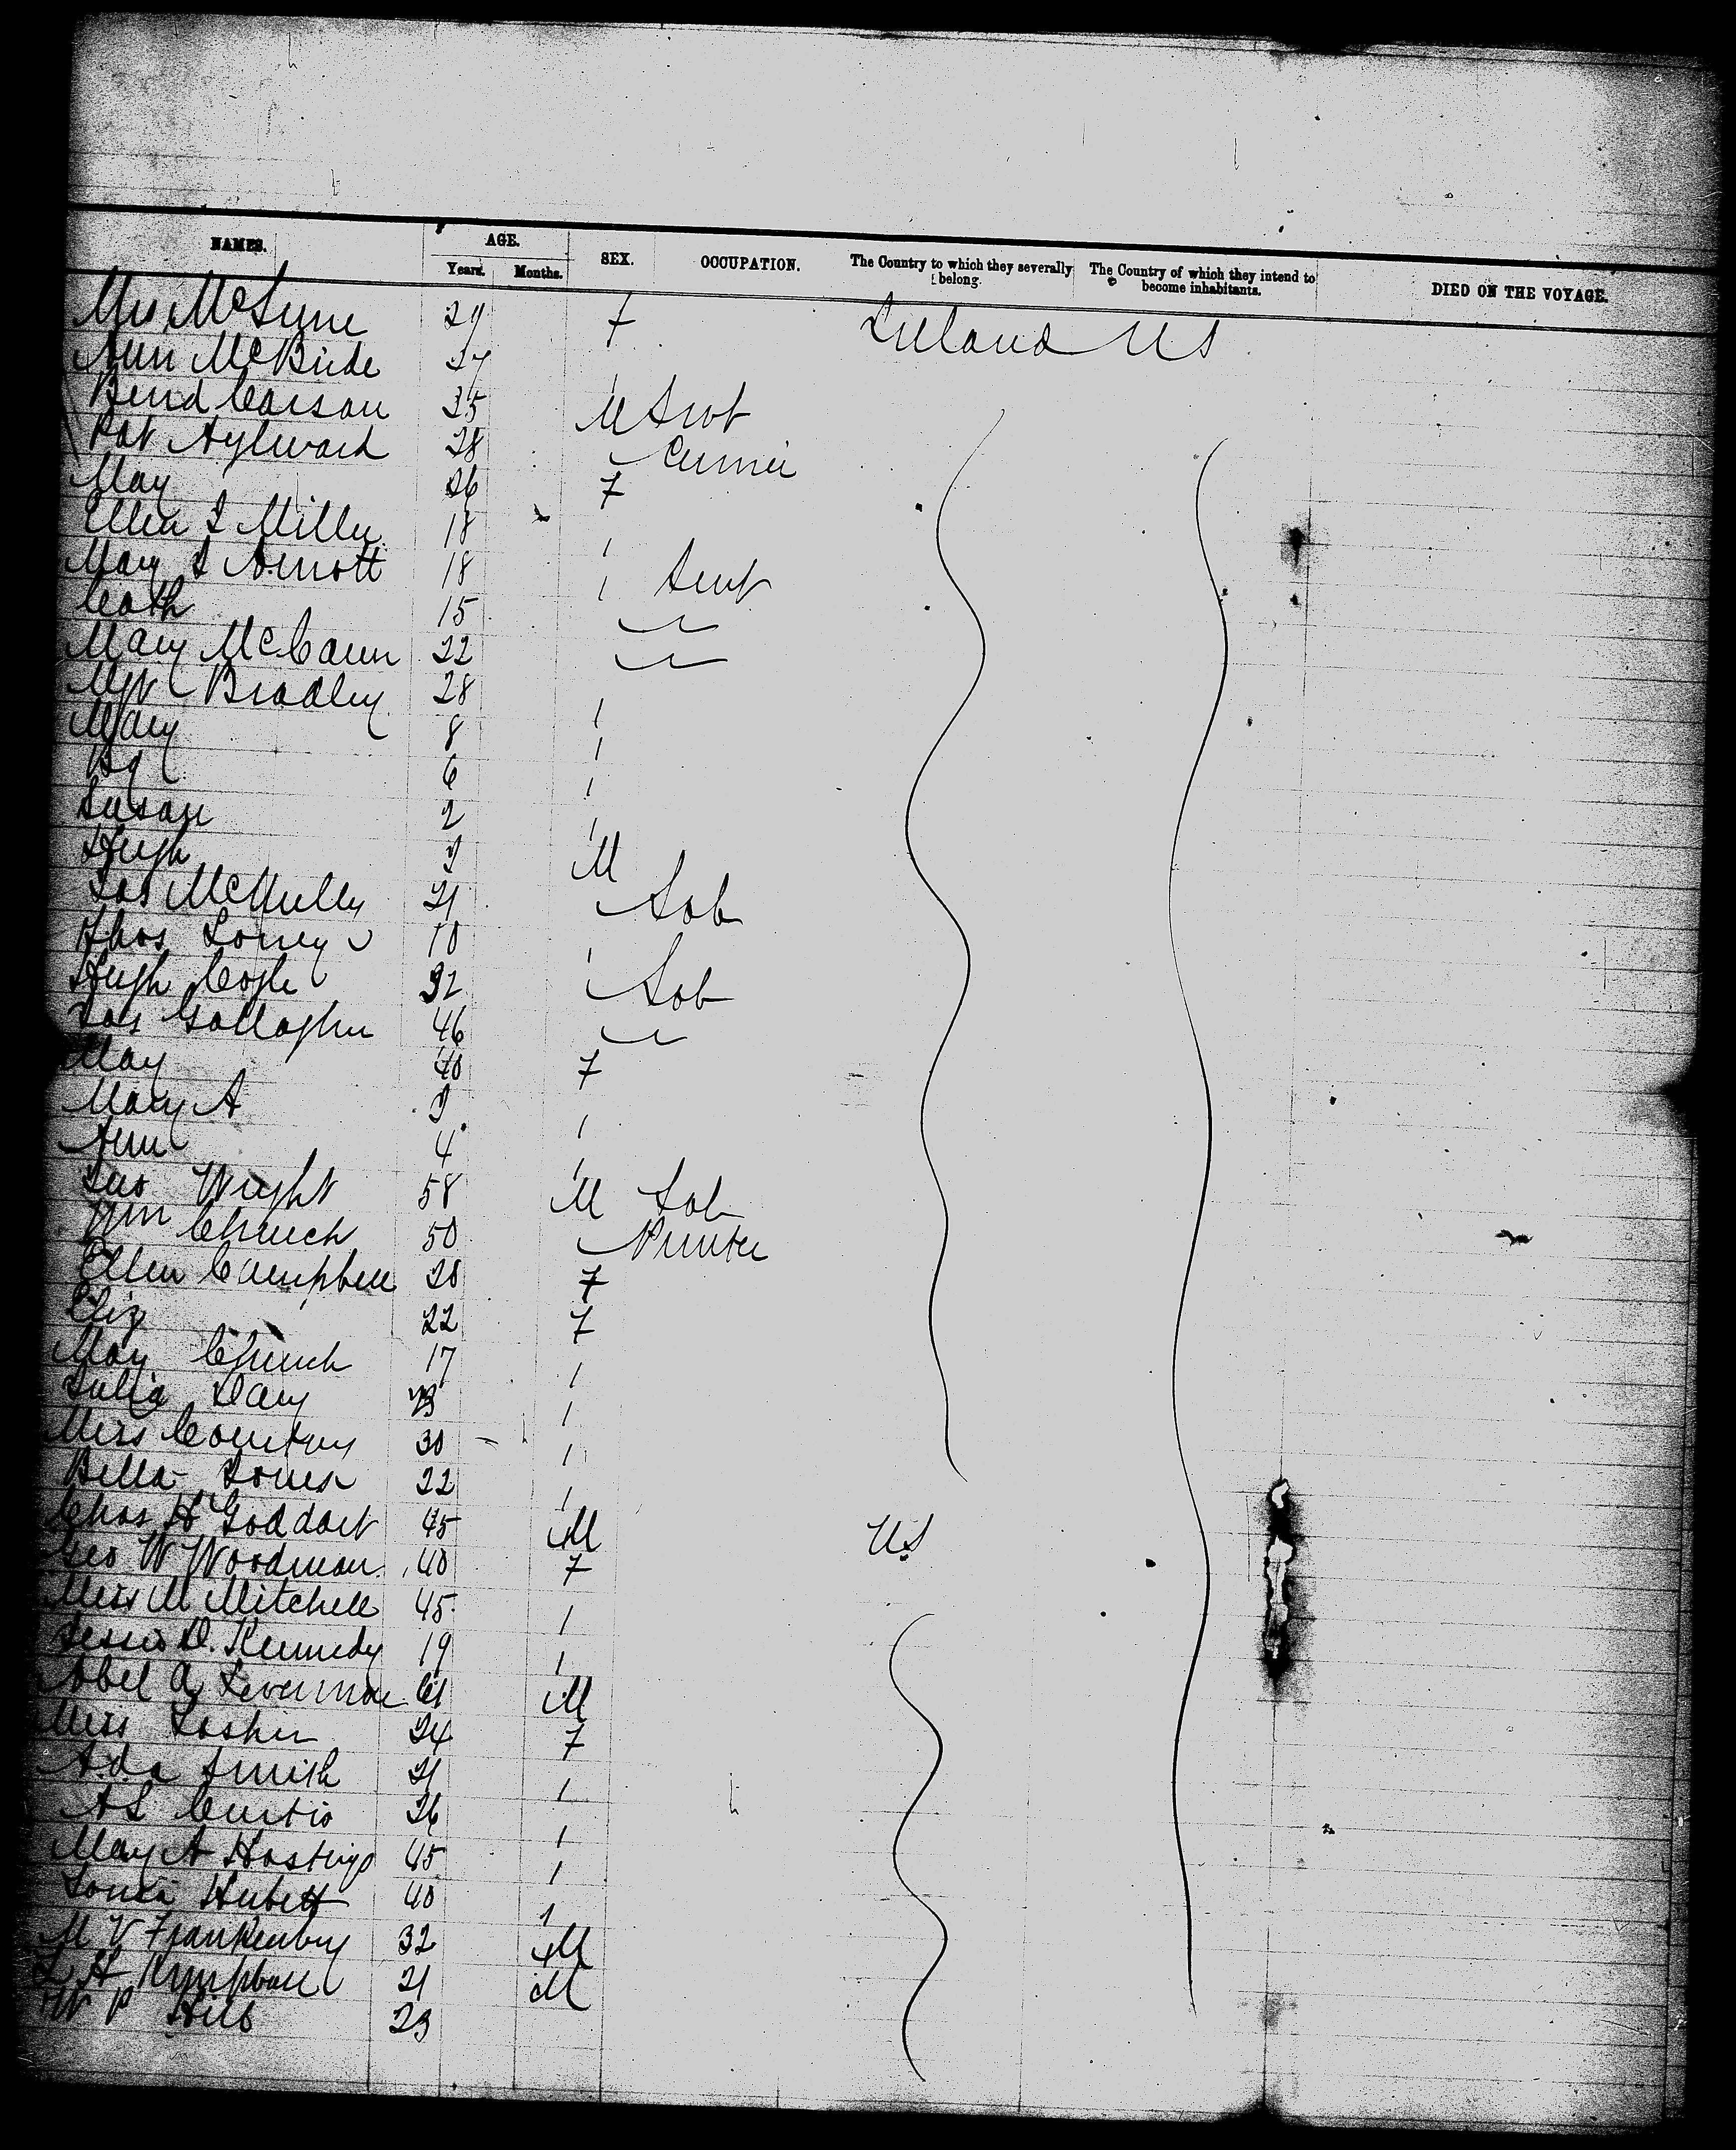 NAMES. AGE. SEX. OCCUPATION. The Country to which they severally belong. The Country of which they intend to become inhabitants. DIED ON THE VOYAGE.
Years. Months.
Mrs 29 F Ireland US
Ann McBride 27
Bernd Carson 35 M Servt
Pat Aylward 28 Currier
May 26 F
Ellen J Miller 18
Mary J 18 Servt
Cath 15
Mary McCann 22
Mgt Bradley 28
Mary 8
Bg 6
Susan 2
Hugh M
Jas McNully 21 Lab
Thos 10
Hugh Coyle 32 Lab
Jas Gallagher 46
May 40 F
Mary A 9
Ann 4
Jas Wright 58 M Lab
Wm Church 50 Printer
Ellen Campbell 28 F
Eliz 22 F
May Church 17
Julia
Miss Courtney 30
Bella Jones 22
Chas H Goddart 45 M US
Geo W Woodman 40 F
Miss M Mitchell 45
Jessie D. Kennedy 19
Abel A Livermore 61 M
Miss 24 F
Ada Smith 21
A L Curtis 26
May A Hastings 45
Louisa 40
M V Frankenburg 32 M
L H 21 M
W P 23